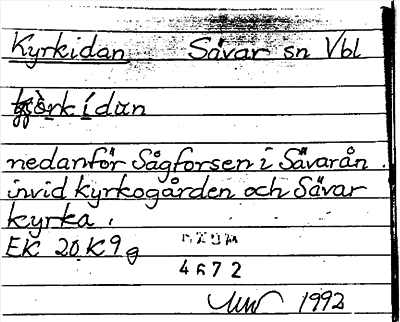 Kyrkidan Sävar sn Vbl
nedanför Sågforsen i Sävarån.
invid kyrkogården och Sävar
kyrka.
EK 20 K 9 g
4672
1992